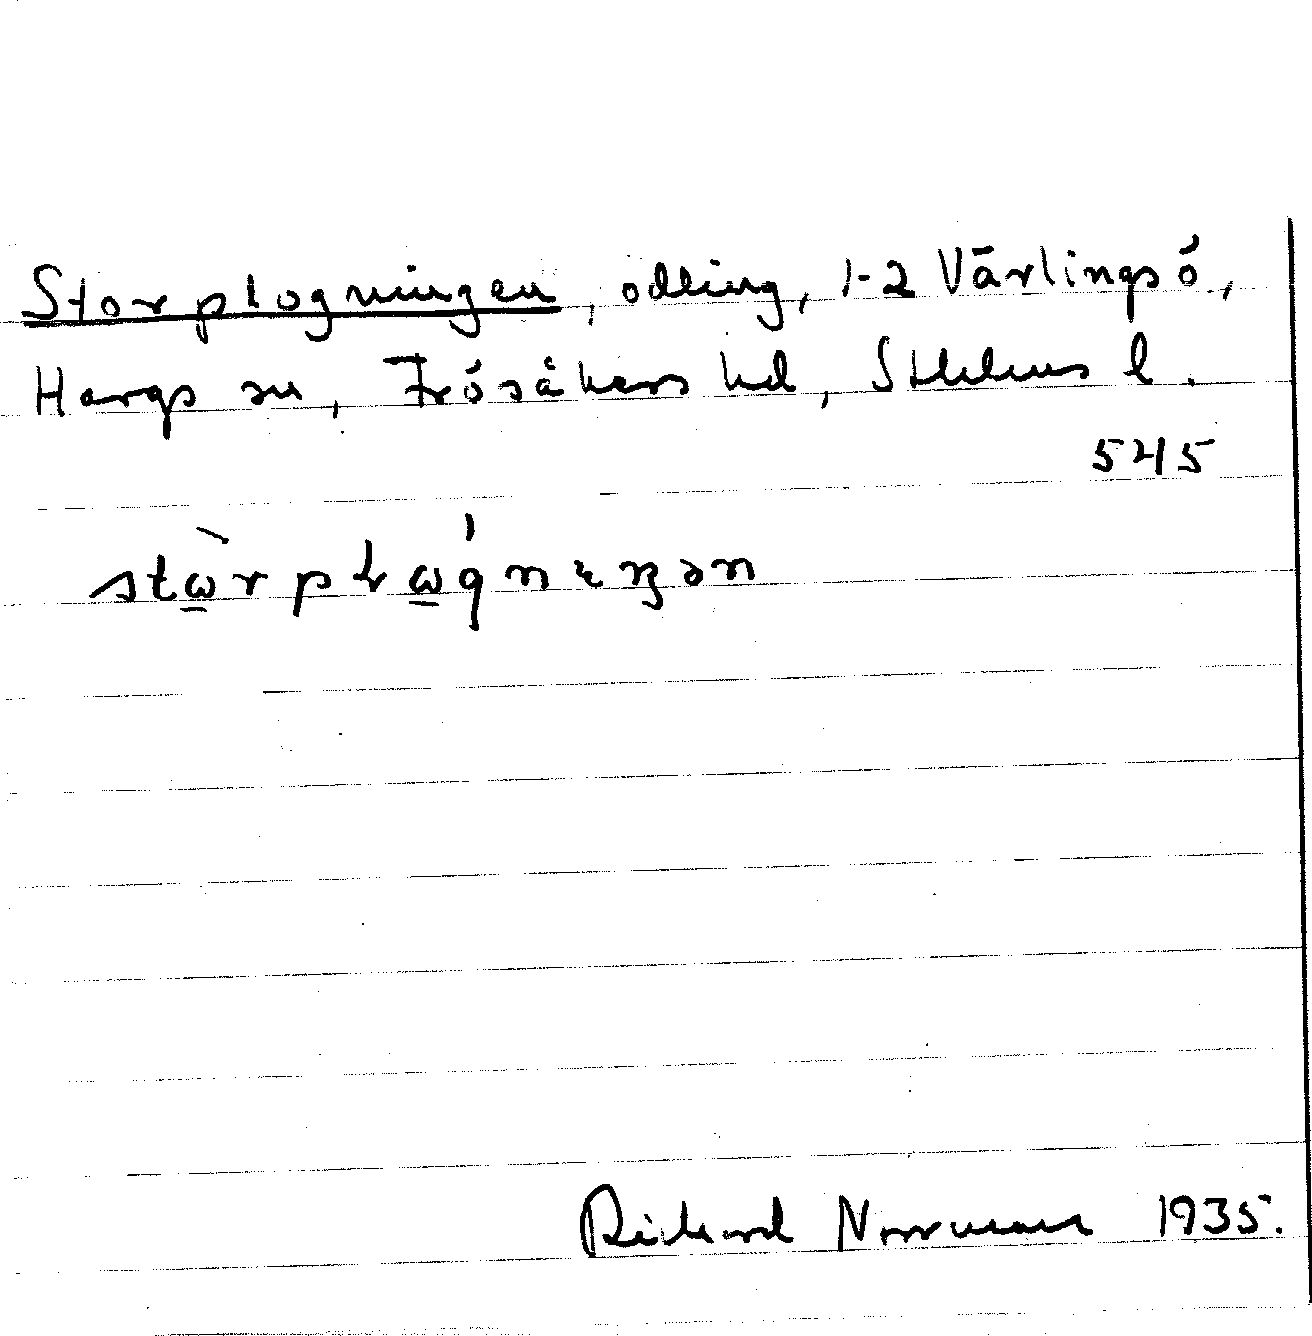 Storplogningen, odling, 1-2 Värlingsö,
Hargs sn, Frösåkers hd, Sthlms l.
545
Rickard Norrman 1935.